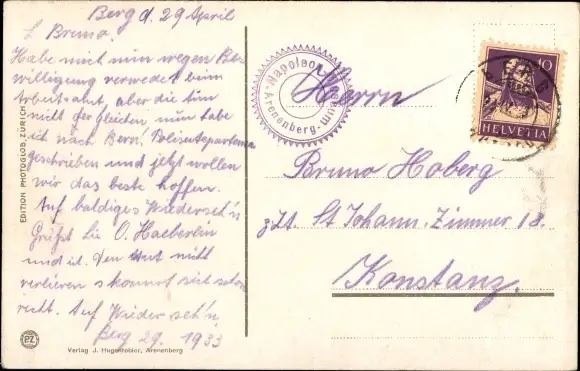 Berg d. 29 April
L Bruno.
Habe mich nun wegen Be-
willigung verwedet beim
Arbeitsamt, aber die tun
nicht der gleichen nun habe
ich nach Bern! Polizeidepartema
geschrieben und jetzt wollen
wir das beste hoffen.
Auf baldiges Wiederseh'n
Grüßt Sie O. Haeberlin
Den Mut nicht
verlieren s kommt
recht. Auf Wieder seh'n
Berg 29. 1933
EDITION PHOTOGLOB, ZÜRICH
PZ
Verlag J. Hugentobler, Arenenberg
Napoleon
Arenenberg
10
HELVETIA
Herrn
Bruno Hoberg
z.Zt. St Johann. Zimmer 18.
Konstanz.